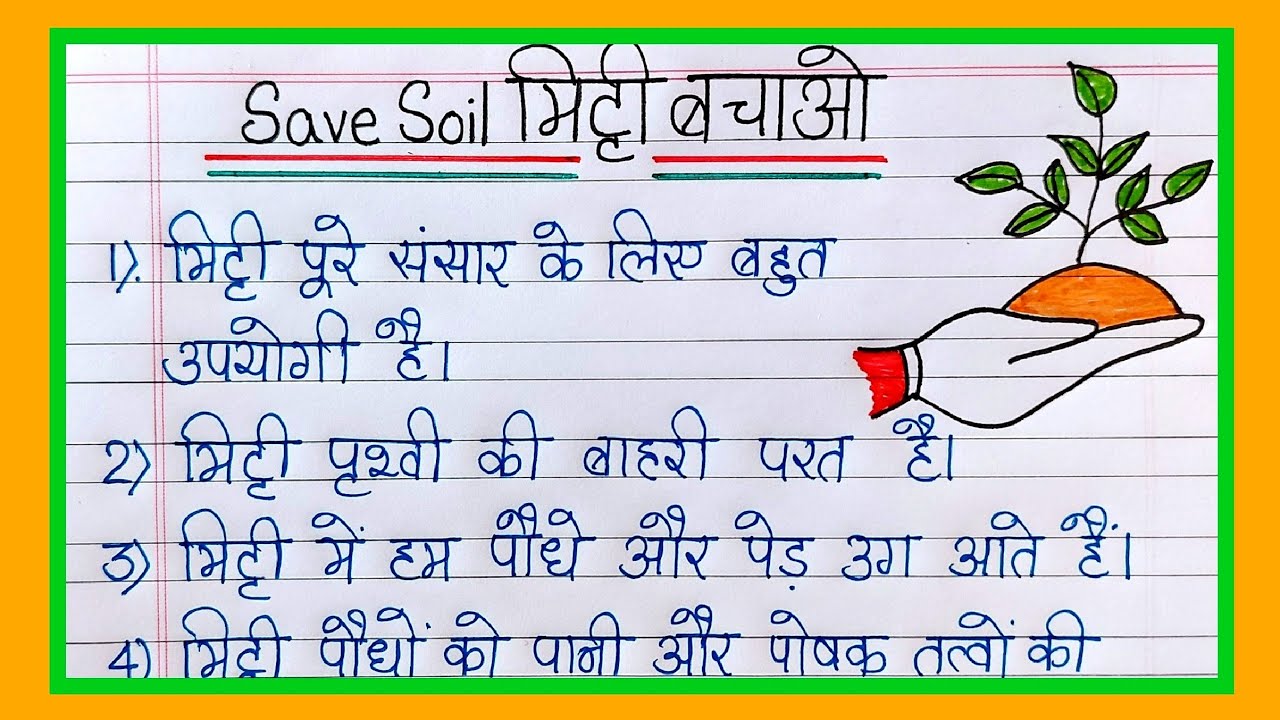 Save Soil मिट्टी बचाओ
1). मिट्टी पूरे संसार के लिए बहुत
उपयोगी है।
2) मिट्टी पृथ्वी की बाहरी परत है।
3) मिट्टी में हम पौधे और पेड़ उग आते हैं।
4) मिट्टी पौधों को पानी और पोषक तत्वों की